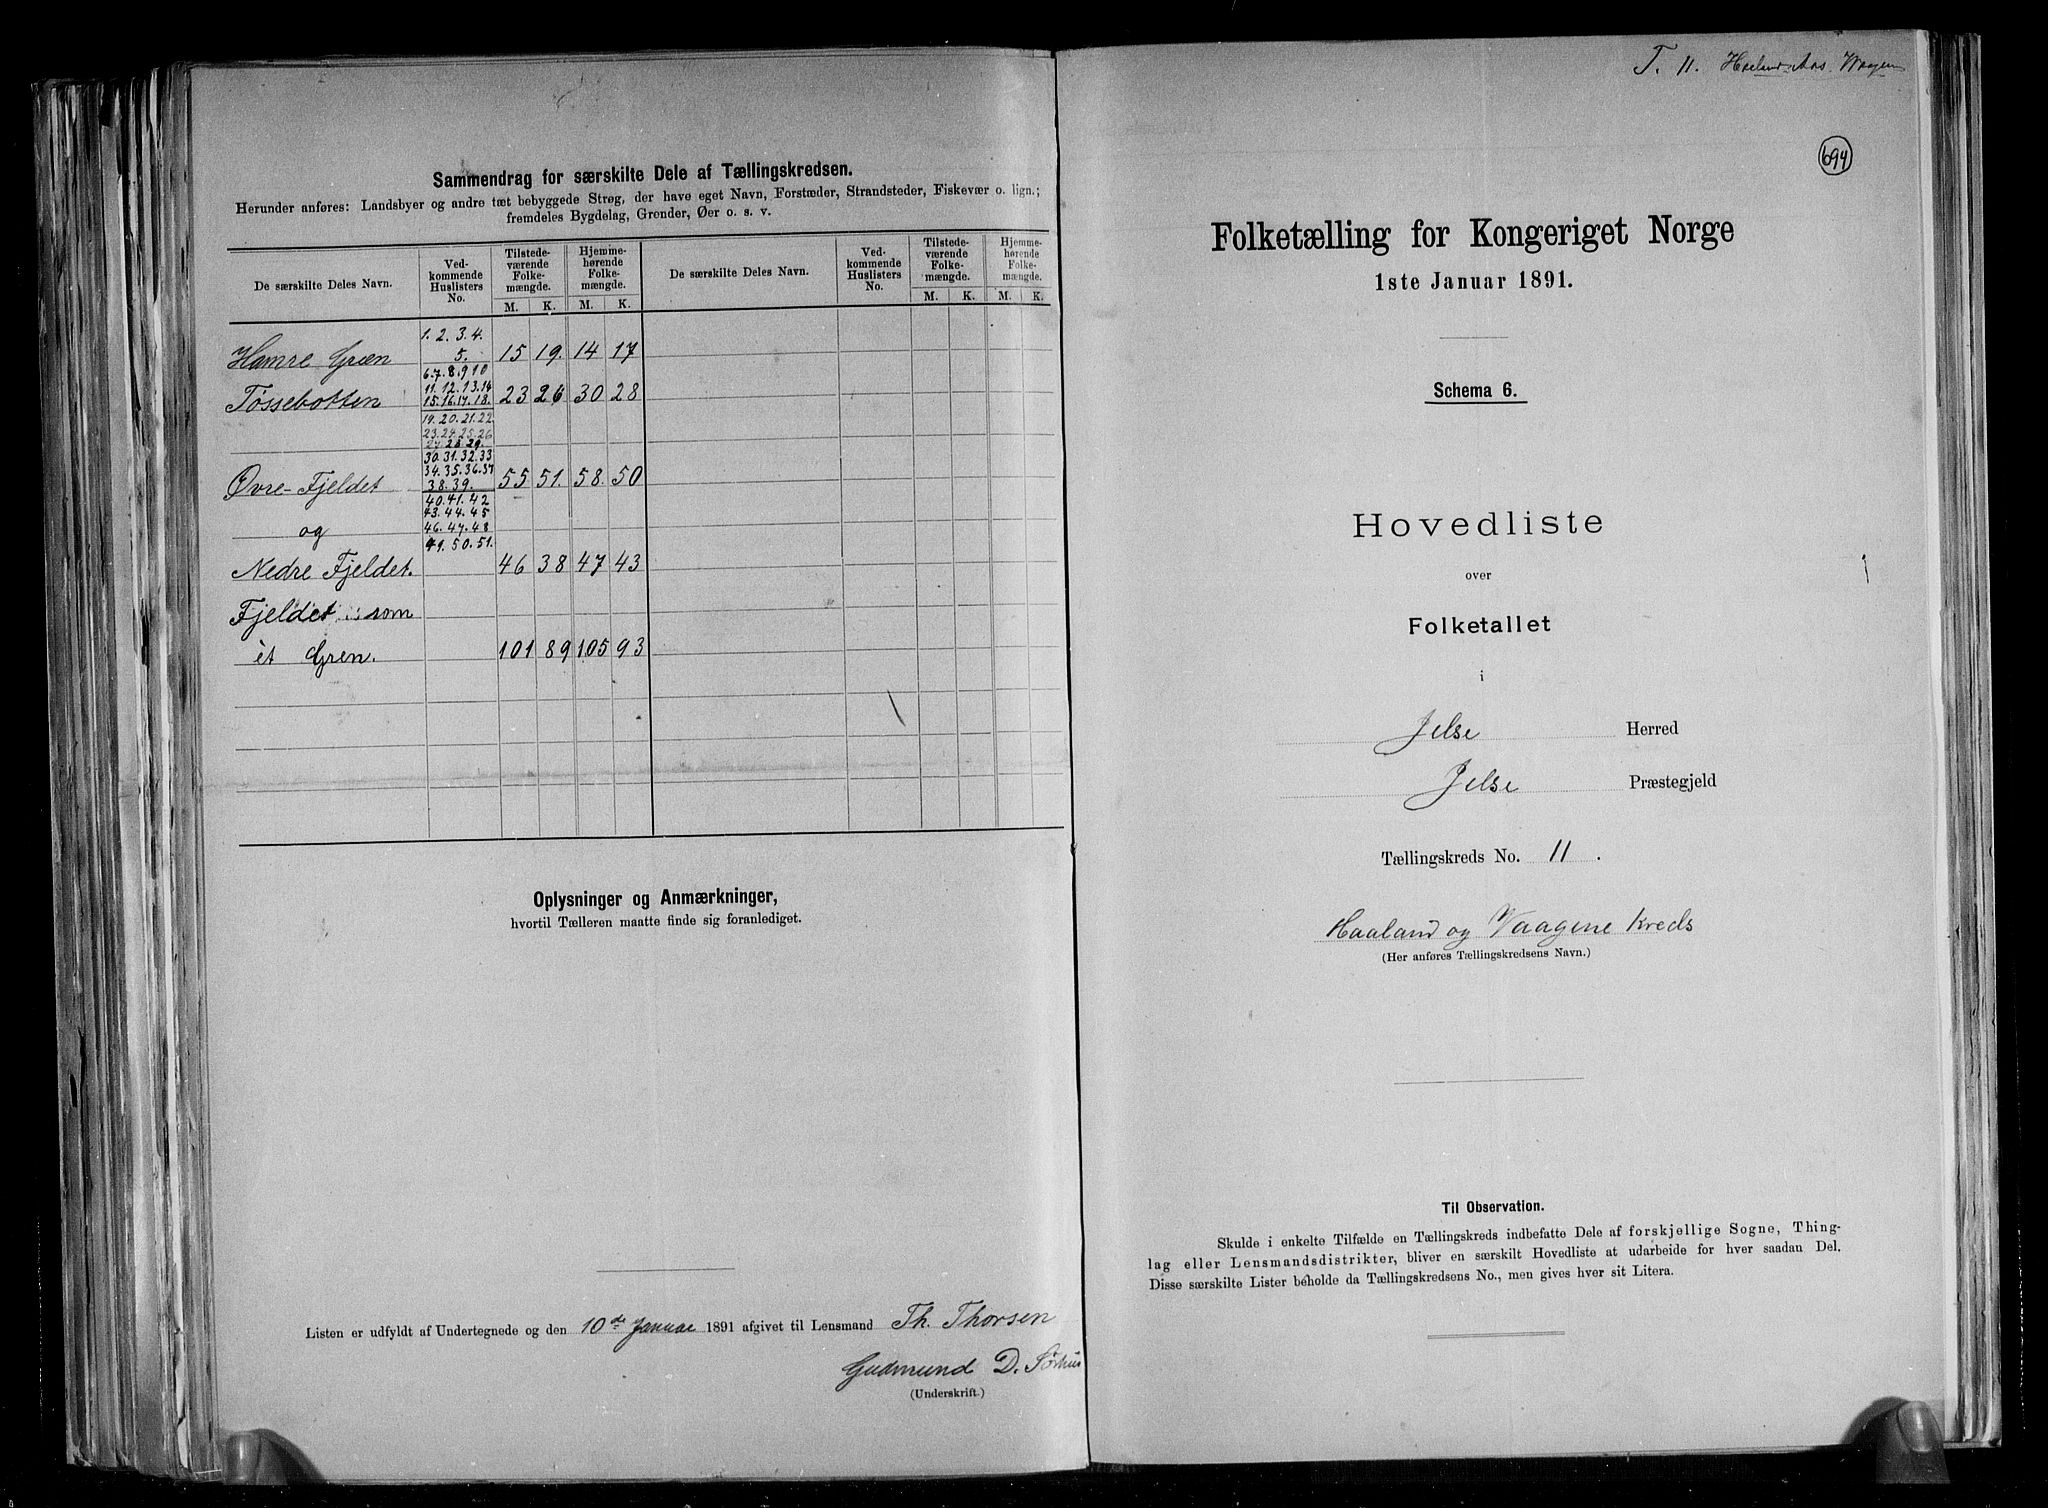 Sammendrag for særskilte Dele af Tællingskredsen.
Herunder anføres: Landsbyer og andre tæt bebyggede Strøg, der have eget Navn, Forstæder, Strandsteder, Fiskevær o. lign.;
fremdeles Bygdelag, Grender, Øer o. s. v.
De særskilte Deles Navn. Ved-kommende Huslisters No. Tilstede-værende Folke-mængde. Hjemme-hørende Folke-mængde. De særskilte Deles Navn. Ved-kommende Huslisters No. Tilstede-værende Folke-mængde. Hjemme-hørende Folke-mængde.
M. K. M. K. M. K. M. K.
1. 2. 3. 4.
Hamre Græn 5. 15 19. 14 17
6.7.8.9 10
11. 12. 13. 14
Tøssebotten 15. 16. 17. 18. 23 26 30 28
19. 20. 21. 22
23. 24. 25. 26
27. 28. 29.
30. 31. 32. 33
34. 35. 36. 37
Øvre-Fjeldet 38. 39. 55 51. 58. 50
40. 41. 42
43. 44. 45
og 46. 47. 48
49. 50. 51.
Nedre Fjeldet. 46 38 47 43
Fjeldet som
èt Gren. 101 89 105 93
Oplysninger og Anmærkninger,
hvortil Tælleren maatte finde sig foranlediget.
Listen er udfyldt af Undertegnede og den 10de Januar 1891 afgivet til Lensmand Th. Thorsen
Gudmund D. Sørhus
(Underskrift.)
T. 11. Haaland Aas Waagen
694
Folketælling for Kongeriget Norge
1ste Januar 1891.
Schema 6.
Hovedliste
over
Folketallet
i
Jelse Herred
Jelse Præstegjeld
Tællingskreds No. 11.
Haaland og Vaagene Kreds
(Her anføres Tællingskredsens Navn.)
Til Observation.
Skulde i enkelte Tilfælde en Tællingskreds indbefatte Dele af forskjellige Sogne, Thing-
lag eller Lensmandsdistrikter, bliver en særskilt Hovedliste at udarbeide for hver saadan Del.
Disse særskilte Lister beholde da Tællingskredsens No., men gives hver sit Litera.